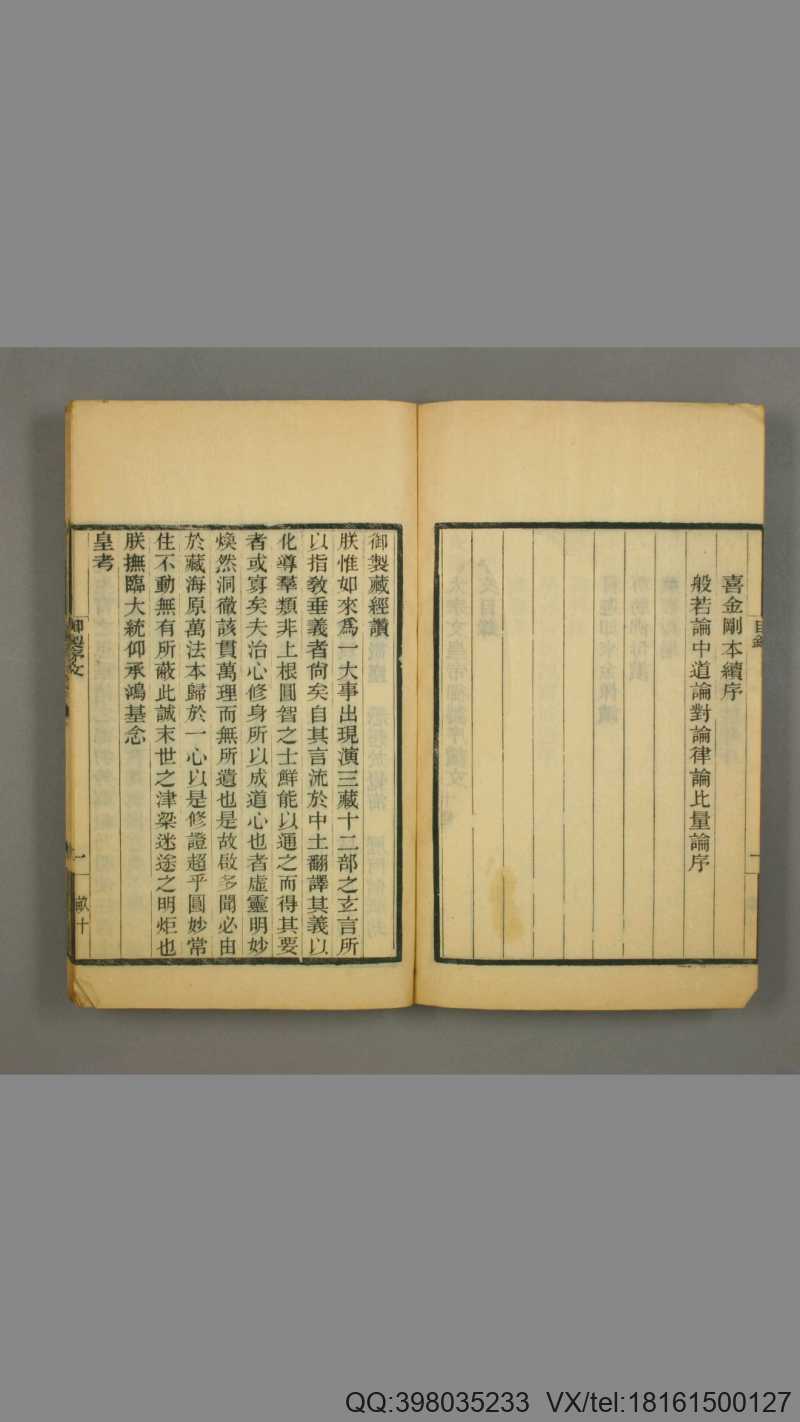 喜金剛本續序
般若論中道論對論律論比量論序
目錄
一
御製藏經讚
朕惟如來爲一大事出現演三藏十二部之玄言所
以指教垂義者尚矣自其言流於中土翻譯其義以
化導羣類非上根圓智之士鮮能以通之而得其要
者或寡矣夫治心修身所以成道心也者虛靈明妙
煥然洞徹該貫萬理而無所遺也是故啟多聞必由
於藏海原萬法本歸於一心以是修證超乎圓妙常
住不動無有所蔽此誠末世之津梁迷途之明炬也
朕撫臨大統仰承鴻基念
皇考
御製序文
一
QQ:398035233 VX/tel:18161500127